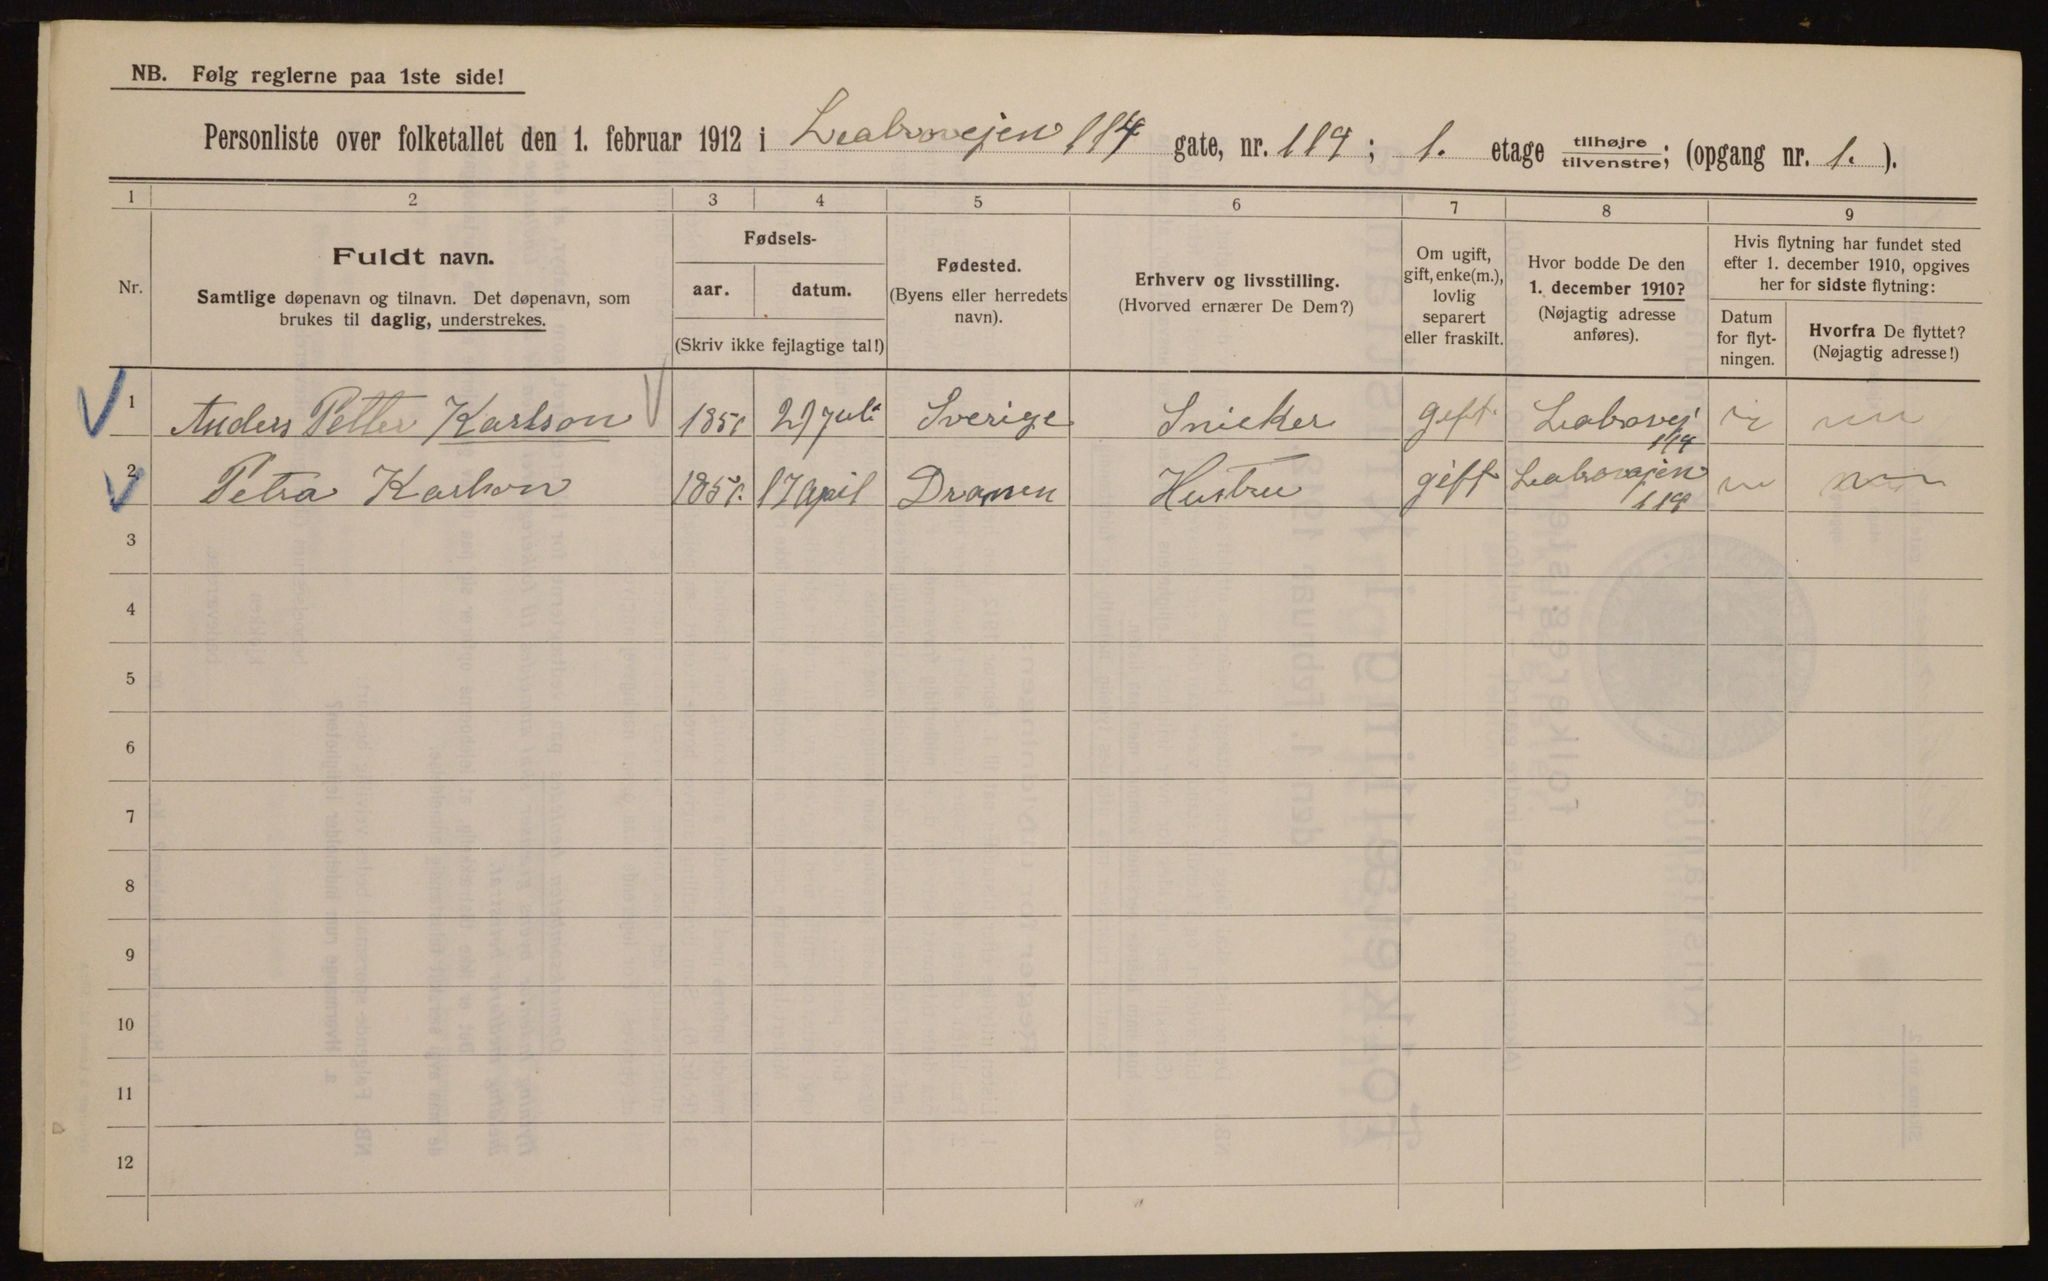 NB. Følg reglerne paa 1ste side!
Personliste over folketallet den 1. februar 1912 i Leabrovejen 114 gate, nr. 119; 1. etage tilhøjre/tilvenstre; (opgang nr. 1. ).
1 2 3 4 5 6 7 8 9
Nr.
Fuldt navn.
Samtlige døpenavn og tilnavn. Det døpenavn, som
brukes til daglig, understrekes.
Fødsels-
aar. datum.
(Skriv ikke fejlagtige tal!)
Fødested.
(Byens eller herredets
navn).
Erhverv og livsstilling.
(Hvorved ernærer De Dem?)
Om ugift,
gift, enke(m.),
lovlig
separert
eller fraskilt.
Hvor bodde De den
1. december 1910?
(Nøjagtig adresse
anføres).
Hvis flytning har fundet sted
efter 1. december 1910, opgives
her for sidste flytning:
Datum
for flyt-
ningen.
Hvorfra De flyttet?
(Nøjagtig adresse!)
1 Anders Petter Karlson 27 juli Sverige Snicker gift Leabrovej
2 Petra Karlson 17 April Dramen Hustru gift Leabrovejen
3
4
5
6
7
8
9
10
11
12